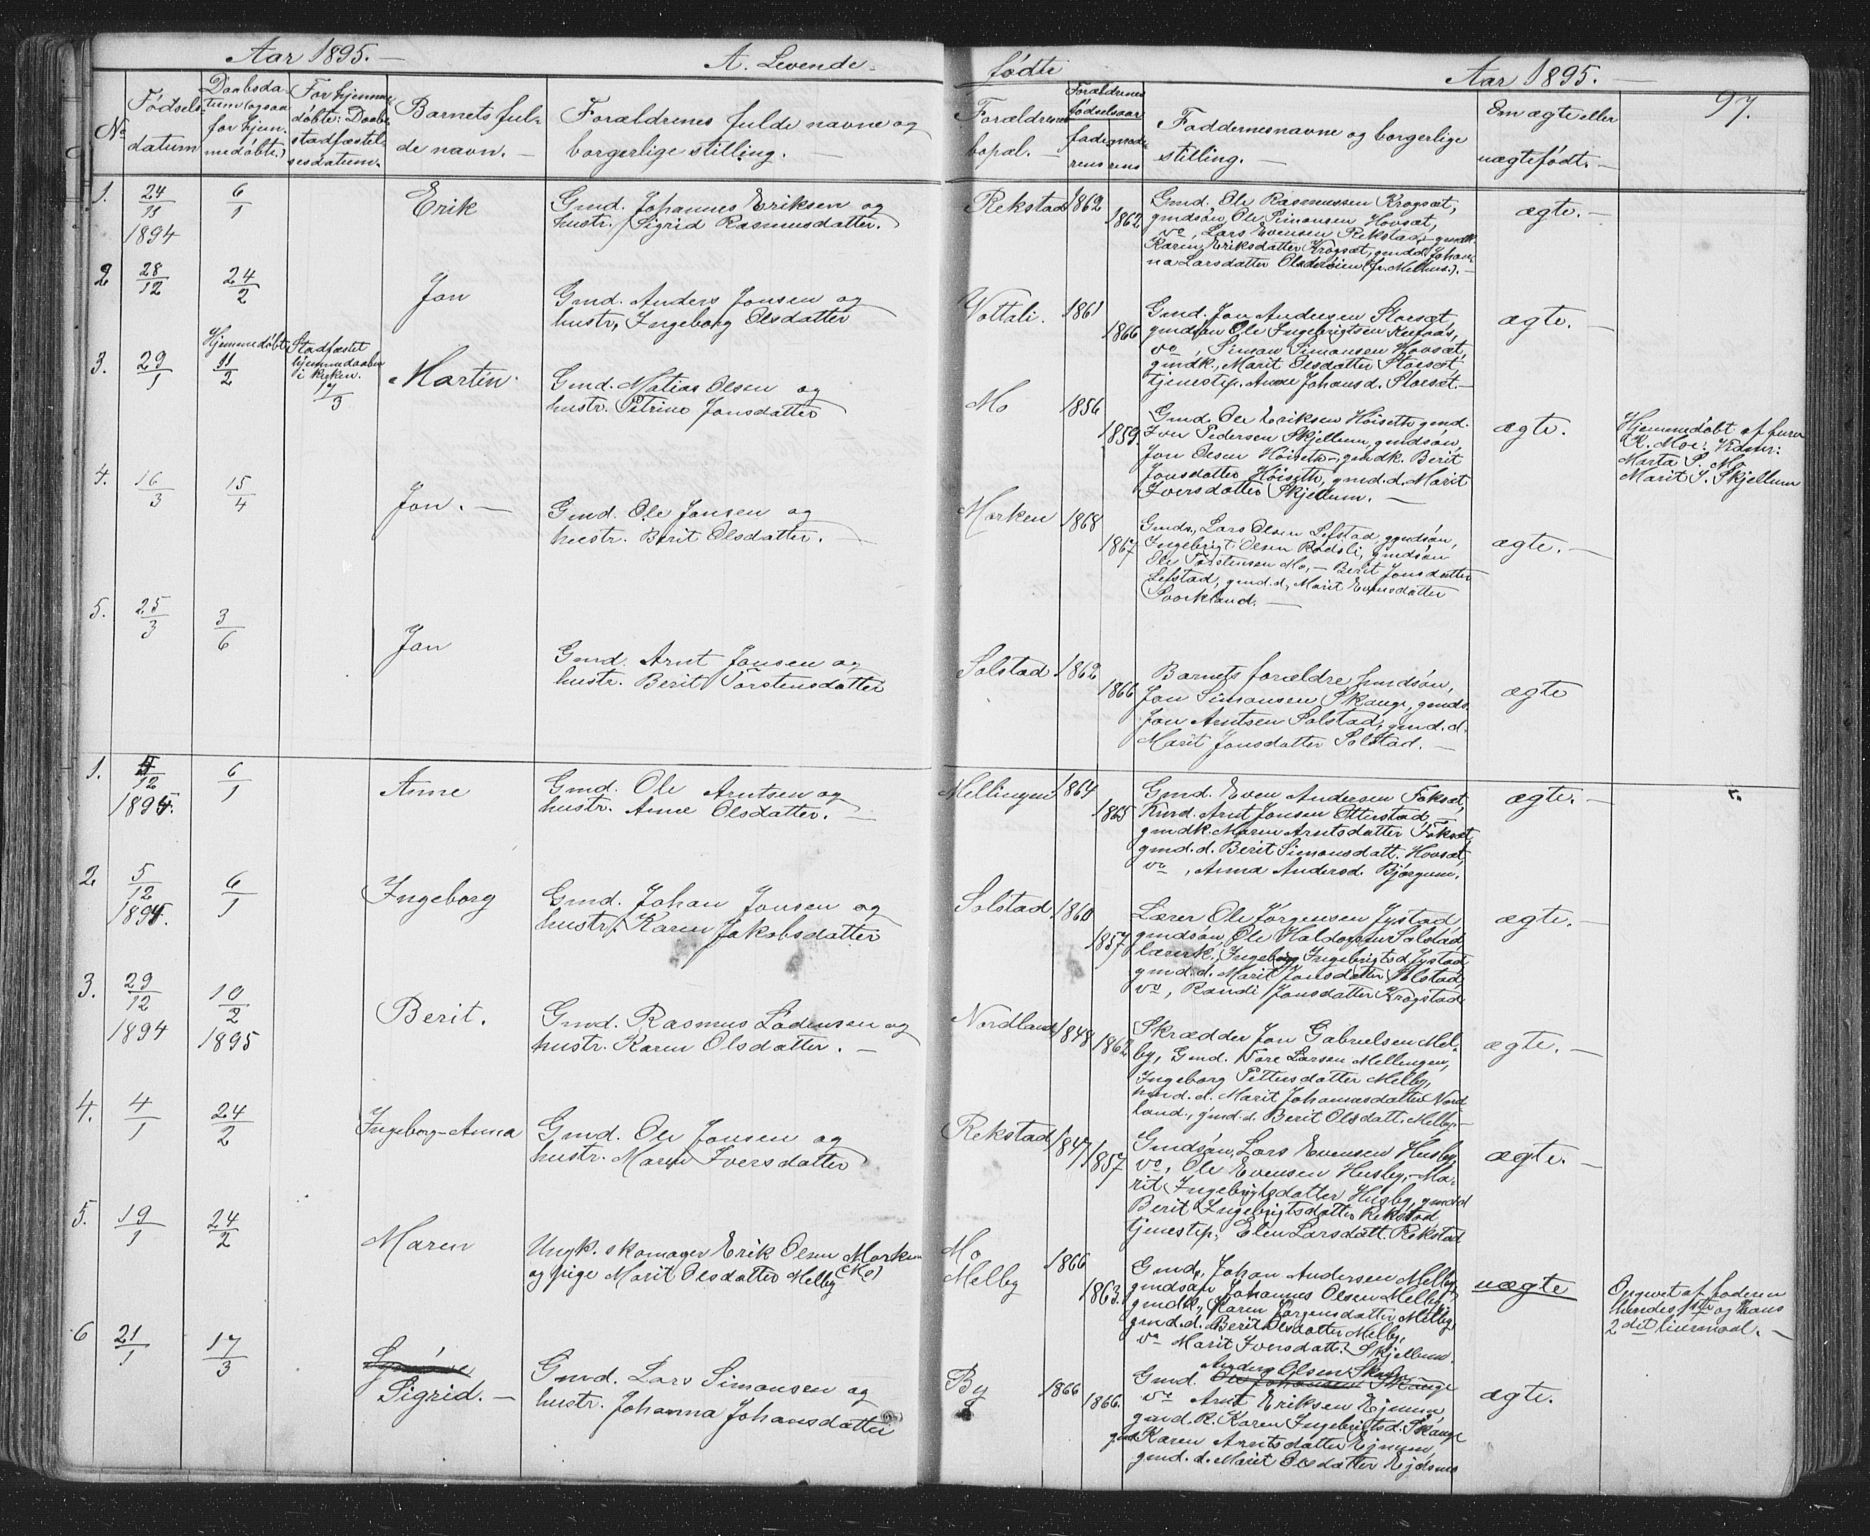 Aar 1895. —
A. Levende
fødte
Aar 1895. —
97.
No
Fødsels-
datum
Daabsda-
tum (ogsaa
for hjem-
medøbte.)
For hjemme-
døbte: Daabs
stadfæstel-
sesdatum.
Barnets ful-
de navn. —
Forældrenes fulde navne og
borgerlige stilling. —
Forældrenes
bopæl. —
Forældrenes
fødselsaar
faderens
moderens
Faddernes navne og borgerlige
stilling. —
Om ægte eller
uægte født. —
1.
24/11
1894
6/1
Erik
Gmd. Johannes Eriksen og
hustr. Sigrid Rasmusdatter.
Rekstad
1862
1862
Gmd. Ole Rasmussen Krogsæt,
gmdsøn Ole Simonsen Hovsæt,
do, Lars Evensen Rekstad, gmdk.
Karen Eriksdatter Krogsæt, gmd.d. Johan-
na Larsdatter (fr. Melhus). —
ægte. —
2
28/12
24/2
Jon
Gmd. Anders Jonsen og
hustr. Ingeborg Olsdatter
Vottali.
1861
1866
Gmd. Jon Andersen Storsæt
gmdsøn Ole Ingebrigtsen
do, Simon Simonsen Hovsæt,
gmdk. Marit Olsdatter Storsæt,
tjenestep. Anne Johansd. Storsæt. —
ægte. —
3.
29/1
Hjemmedøbt
11/2
Stadfæstet
hjemmedaaben
i kirken.
17/3
Martin.
Gmd. Matias Olsen og
hustr. Petrine Jonsdatter
Mo
1856
1859.
Gmd. Ole Eriksen Høiseth, gmd.
Iver Pedersen Skjellum, gmdsøn,
Jon Olsen Høiseth, gmdk. Berit
Jonsdatter Høiseth, gmd.d. Marit
Iversdatter Skjellum. —
ægte.
Hjemmedøbt af
K. Moe: Vidner:
Marta P. Mo,
Marit I. Skjellum
4.
16/3
15/4
Jon. —
Gmd. Ole Jonsen og
hustr. Berit Olsdatter. —
Morken
1868
1867
Gmds. Lars Olsen Lefstad, gmdsøn,
Ingebrigt Olsen Rødsli, gmdsøn
Ole Torstensen Mo, — Berit Jonsdatter
Lefstad, gmd.d. Marit Evensdatter
Svorkland. —
ægte. —
5.
25/3
3/6
Jon
Gmd. Arnt Jonsen og
hustr. Berit Torstensdatter
Solstad
1862
1866
Barnets forældre, gmdsøn,
Jon Simonsen Skauge, gmds.
Jon Arntsen Solstad, gmd.d.
Marit Jonsdatter Solstad. —
ægte
1.
4/12
1894.
6/1
Anne
Gmd. Ole Arntsen og
hustr. Anne Olsdatter. —
Mellingen
1864
1865
Gmd. Even Andersen Foksæt,
Arnt Jonsen Otterstad, —
gmdk. Maren Arntsdatter Foksæt,
gmd.d. Berit Simonsdatt. Hovsæt,
do, Anna Andersd. Bjørgum.
ægte. —
2
5/12
1894.
6/1
Ingeborg
Gmd. Johan Jonsen og
hustr. Karen Jakobsdatter
Solstad.
1860
1857
Lærer Ole Jørgensen Jystad,
gmdsøn, Ole Haldorsen Solstad,
lærerk. Ingeborg Ingebrigtsd. Jystad
gmd.d. Marit Jonsdatter Solstad,
do, Randi Jonsdatter Krogstad.
ægte. —
3.
29/12
1894
10/2
1895
Berit.
Gmd. Rasmus Lodensen og
hustr. Karen Olsdatter. —
Nordland
1848
1862
Skrædder Jon Gabrielsen Mel-
by, Gmd. Tore Larsen Mellingen,
Ingeborg Pettersdatter Melby,
gmd.d. Marit Johannesdatter Nord-
land, gmd.d. Berit Olsdatt. Melby. —
ægte. —
4.
4/1
24/2
Ingeborg-Anna
Gmd. Ole Jonsen og
hustr. Maren Iversdatter
Rekstad
1847
1857
Gmdsøn, Lars Evensen Husby,
do, Ole Evensen Husby, Ma-
rit Ingebrigtsdatter Husby, gmd.d.
Berit Ingebrigtsdatter Rekstad
tjenestep. Elen Larsdatt. Rekstad
ægte. —
5.
19/1
24/2
Maren
Ungk. skomager Erik Olsen Morken
og pige Marit Olsdatter Melby (Mo)
Mo
Melby
1866
1863.
Gmds. Johan Andersen Melby,
gmdsøn Johannes Olsen Melby,
gmdk. Karen Jørgensdatter Melby,
gmd.d. Berit Olsdatter Melby,
do Marit Iversdatt. Skjellum.
uægte
Opgivet af faderen
hendes 1ste og hans
2det leiermaal. —
6
21/1
17/3
Sigrid. —
Gmd. Lars Simonsen og
hustr. Johanna Johansdatter
By
1866
1866.
Anders Olsen Skauge
Gmd. Ole Johansen Skauge
do Arnt Eriksen Ejnum
gmd.k. Karen Ingebrigtsd. Skauge
gmd. Karen Arntsdatter Ejnum,
gmd.d. Marit Olsdatter Ejdsmo
ægte.